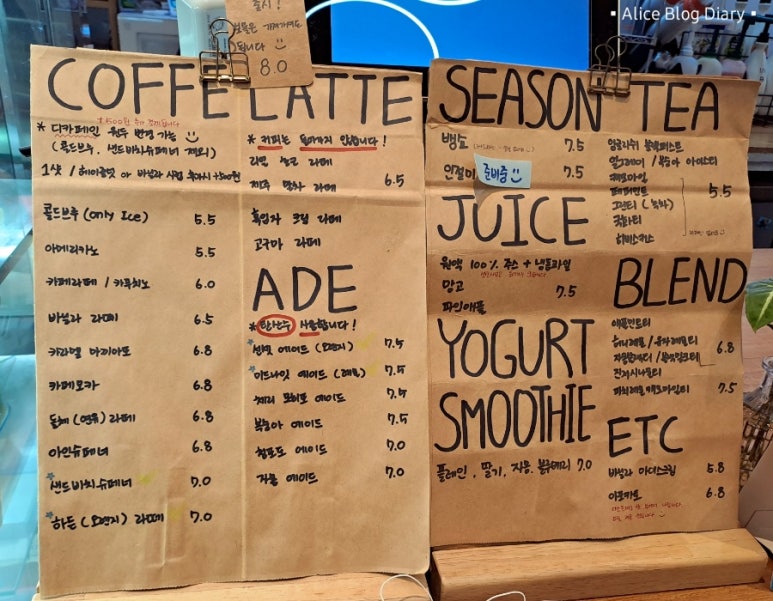 ▪ Alice Blog Diary ▪
출시!
됩니다
8.0
COFFE
* 디카페인 원두 변경 가능
(콜드브루, 샌드바치슈페너 제외)
콜드브루 (only Ice) 5.5
아메리카노 5.5
카페라떼 / 카푸치노 6.0
바닐라 라떼 6.5
카라멜 마끼아또 6.8
카페모카 6.8
돌체 (연유) 라떼 6.8
아인슈페너 6.8
샌드바치슈페너 7.0
하든 (오렌지) 라떼 7.0
LATTE
* 커피는 들어가지 않습니다!
리얼 초코 라떼
제주 말차 라떼 6.5
흑임자 크림 라떼
고구마 라떼
ADE
* 탄산수 사용합니다!
선셋 에이드 (오렌지) 7.5
미드나잇 에이드 (레몬) 7.5
체리 모히또 에이드 7.5
복숭아 에이드 7.5
청포도 에이드 7.0
자몽 에이드 7.0
SEASON
뱅쇼 7.5
인절미 준비중 7.5
JUICE
원액 100% 주스 + 냉동과일
망고
파인애플 7.5
YOGURT
SMOOTHIE
플레인, 딸기, 자몽, 블루베리 7.0
TEA
잉글리쉬 블랙퍼스트
얼그레이 / 복숭아 아이스티
캐모마일
페퍼민트 5.5
그린티 (녹차)
국화티
히비스커스
BLEND
애플민트티
허니레몬 / 유자레몬티
6.8
7.5
ETC
바닐라 아이스크림 5.8
아포카토 6.8